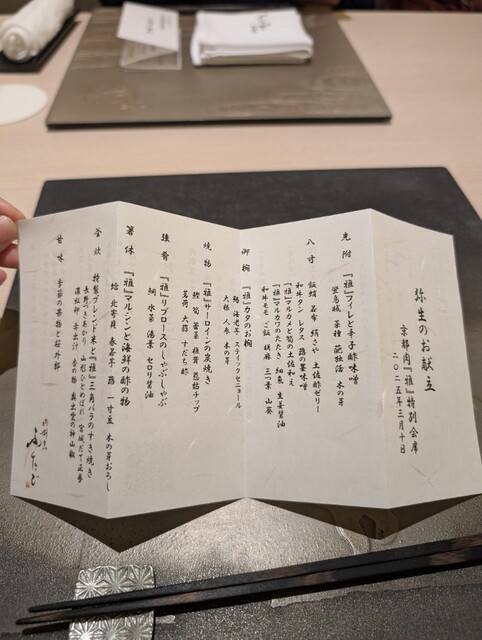 弥生のお献立
京都肉『雅』特別会席
二〇二五年三月十日
先附 『雅』フィレと辛子酢味噌
蛍烏賊 菜種 木の芽
八寸 飯蛸 若布 絹さや 土佐酢ゼリー
和牛タン レタス 蕗の薹味噌
『雅』マルカメと筍の土佐和え
『雅』マルカワのたたき 細魚 生姜醤油
和牛モモ ご飯 胡麻 三つ葉 山葵
御椀 『雅』カタのお椀
大根 人参 木の芽
焼物 『雅』サーロインの炭焼き
筍 蕗薹 椎茸 チップ
茗荷 大蒜 すだち酢
強肴 『雅』リブロースのしゃぶしゃぶ
水菜 湯葉 セロリ醤油
箸休 『雅』マルシンと海鮮の酢の物
蛤 北寄貝 春若芋 蕗 一寸豆 木の芽おろし
釜炊 特製ブレンド米と『雅』三角バラのすき焼き
長野かざあかり 山形ひとめぼれ 宮城だて正夢
赤出汁 香の物
甘味 季節の果物と桜外郎